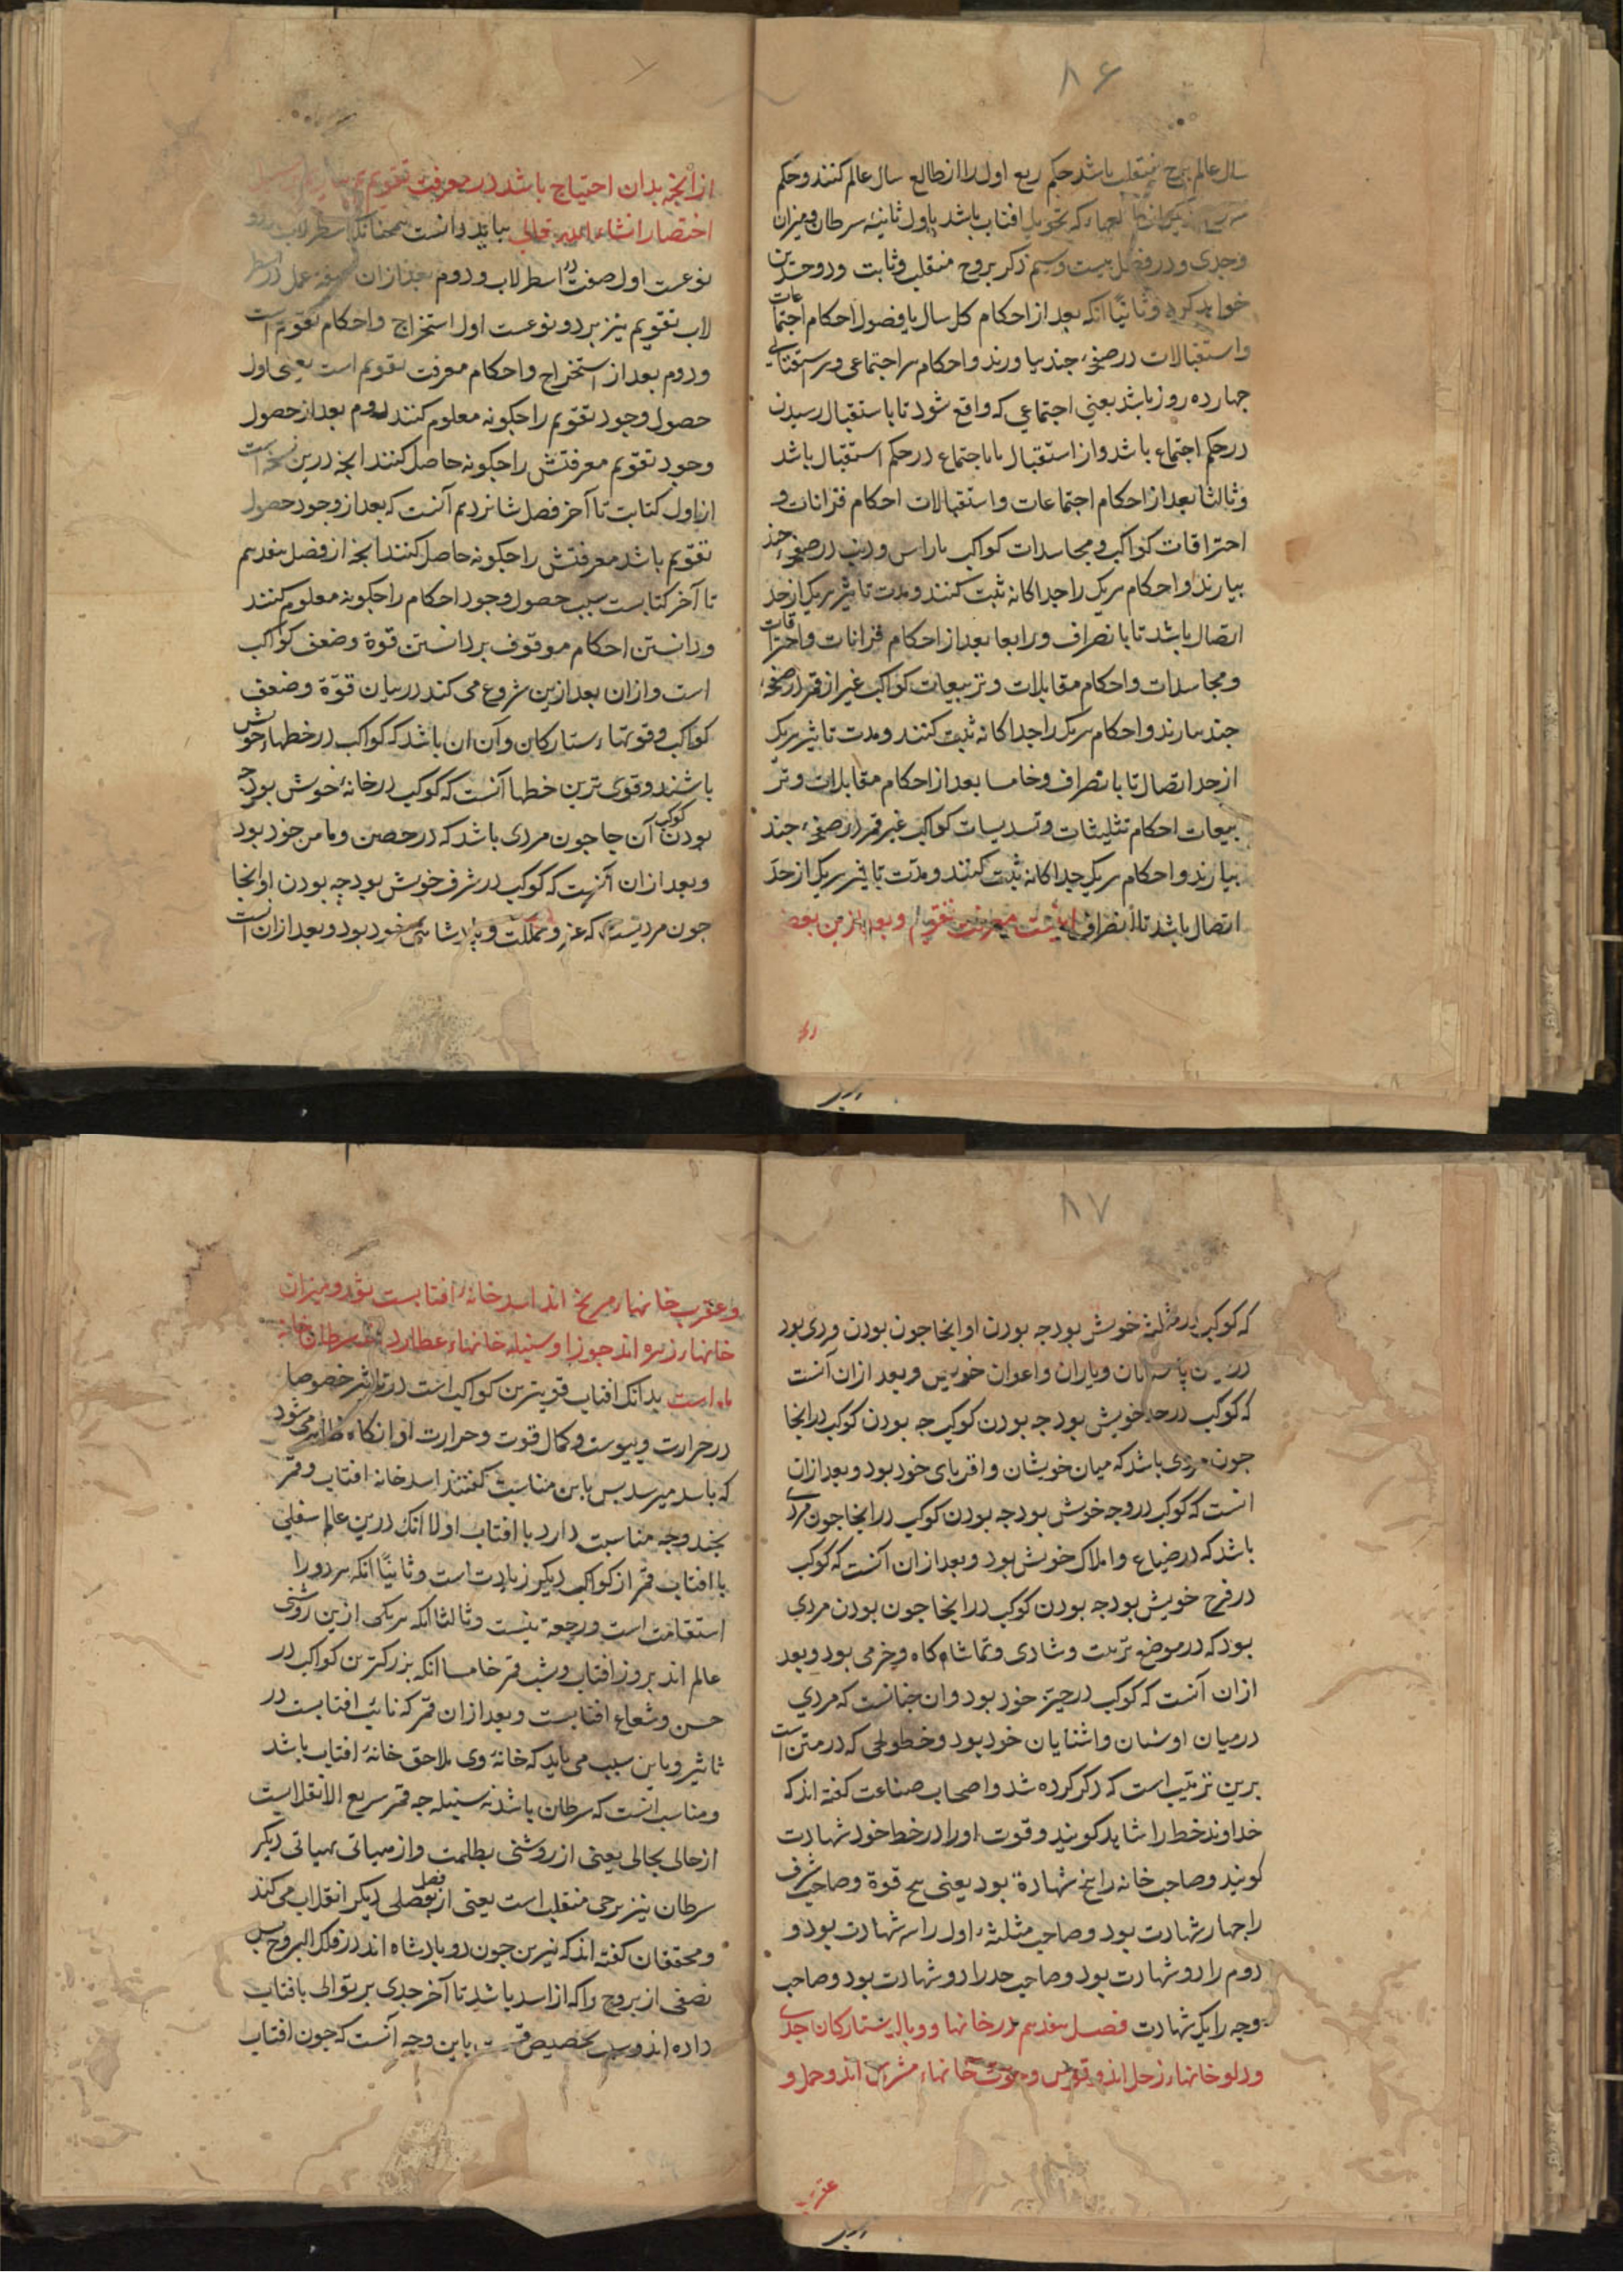 ۸۶
سال عالم برج منقلب باشد حکم ربع اول را از طالع سال عالم کنند و حکم
که تحویل افتاب باشد باول ثانیهٔ سرطان و میزان
و جدی و در فصل بیست و سیم ذکر بروج منقلب و ثابت و ذو جسدین
خواهد کرد و ثانیًا آنکه بعد از احکام کل سال یا فصول احکام اجتماعات
و استقبالات در صفحهٔ جند بیاورند و احکام هر اجتماعی و هر استقبالی
جهارده روز باشد یعنی اجتماعی که واقع شود تا باستقبال رسیدن
در حکم اجتماع باشد و از استقبال تا باجتماع در حکم استقبال باشد
و ثالثا بعد از احکام اجتماعات و استقبالات احکام قرانات و
احتراقات کواکب و مجاسدات کواکب با راس و ذنب در صفحهٔ جند
بیارند و احکام هریک را جداکانه ثبت کنند و مدت تاثیر هریک از حد
اتصال باشد تا بانصراف و رابعا بعد از احکام قرانات و احتراقات
و مجاسدات و احکام مقابلات و تربیعات کواکب غیر از قمر در صفحهٔ
جند بیارند و احکام هریک را جداکانه ثبت کنند و مدت تاثیر هریک
از حد اتصال تا بانصراف و خامسا بعد از احکام مقابلات و تر
بیعات احکام تثلیثات و تسدیسات کواکب غیر قمر در صفحهٔ جند
بیارند و احکام هریک جداکانه ثبت کنند و مدّت تاثیر هریک از حدّ
اتصال باشد تا بانصراف اینست معرفت تقویم و بعد ازین بعضی
از آنجه بدان احتیاج باشد در معرفت تقویم
اختصار انشاء الله تعالی بباید دانست همجنانکه اسطرلاب بر دو
نوعست اول صفت در اسطرلاب و دوم بعد از ان عمل در اسطر
لاب تقویم نیز بر دو نوعست اول استخراج و احکام تقویم است
و دوم بعد از استخراج و احکام معرفت تقویم است یعنی اول
حصول وجود تقویم را جکونه معلوم کنند دوم بعد از حصول
وجود تقویم معرفتش را جکونه حاصل کنند انجه درین نسخه است
از اول کتابت تا آخر فصل شانزدهم آنست که بعد از وجود حصول
تقویم باشد معرفتش را جکونه حاصل کنند انجه از فصل هفدهم
تا آخر کتابست سبب حصول وجود احکام را جکونه معلوم کنند
و دانستن احکام موقوف بر دانستن قوة و ضعف کواکب
است و ازان بعد ازین شروع می کند در بیان قوّة و ضعف
کواکب و قوتهاء ستارکان و آن ان باشد که کواکب در خطهاء خوش
باشند و قوی ترین خطها آنست که کوکب در خانهٔ خوش بود جه
بودن کوکب آن جا جون مردی باشد که در حصن و مامن خود بود
و بعد از ان آنست که کوکب در شرف خوش بود جه بودن او انجا
جون مردیست که عز و مملکت و پادشاهی خود بود و بعد ازان است
۸۷
که کوکب در مثلثهٔ خویش بود جه بودن او انجا جون بودن مردی بود
یاران و اعوان خویش و بعد ازان آنست
که کوکب در حد خویش بود جه بودن کوکب جه بودن کوکب در انجا
جون مردی باشد که میان خویشان و اقربای خود بود و بعد ازان
انست که کوکب در وجه خوش بود جه بودن کوکب در انجا جون مردی
باشد که در ضیاع و املاک خوش بود و بعد ازان آنست که کوکب
در فرح خویش بود جه بودن کوکب در انجا جون بودن مردی
بود که در موضع نزهت و شادی و تماشاء کاه و خرمی بود و بعد
ازان آنست که کوکب در حیّز خود بود و ان جنانست که مردی
در میان اوشان و اشنایان خود بود و خطوطی که در متن است
برین ترتیب است که ذکر کرده شد و اصحاب صناعت کفته اند که
خداوند خط را شاهد کویند و قوت او را در خط خود شهادت
کویند و صاحب خانه را پنج شهادة بود یعنی پنج قوة و صاحب شرف
را جهار شهادت بود و صاحب مثلثهٔ اول را سه شهادت بود و
دوم را دو شهادت بود و صاحب حد را دو شهادت بود و صاحب
وجه را یک شهادت فصل هفدهم در خانها و وبالهاء ستارکان جدی
و دلو خانهاء زحل اند و قوس و حوت خانهاء مشتری اند و حمل و
و عقرب خانهاء مریخ اند اسد خانهٔ افتابست ثور و میزان
خانهاء زهره اند جوزا و سنبله خانهاء عطارد سرطان خانهٔ
ماه است بدانک افتاب قویترین کواکب است در تاثیر خصوصا
در حرارت و یبوست و کمال قوت و حرارت او انکاه ظاهر می شود
که باسد میرسد بس باین مناسبت کفتند اسد خانه افتاب و قمر
بجند وجه مناسبت دارد با افتاب اولا انک درین عالم سفلی
با افتاب قمر از کواکب دیکر زیادت است و ثانیًا انکه هردو را
استقامت است و رجعة نیست و ثالثا انکه هریکی ازین روشنی
عالم اند بروز افتاب و شب قمر خامسا انکه بزرکترین کواکب در
حسن و شعاع افتابست و بعد ازان قمر که نائب افتابست در
تاثیر و باین سبب می باید که خانهٔ وی ملاحق خانهٔ افتاب باشد
و مناسب انست که سرطان باشد نه سنبله جه قمر سریع الانقلابست
از حالی بحالی یعنی از روشنی بظلمت و از هیاتی بهیاتی دیکر
سرطان نیز برجی منقلب است یعنی از فصل بفصلی دیکر انقلاب می کند
و محققان کفته اند که نیرین جون دو پادشاه اند در فلک البروج بس
نصفی از بروج را که از اسد باشد تا آخر جدی بر توالی بافتاب
داده اند و سبب تخصیص باین وجه آنست که جون افتاب